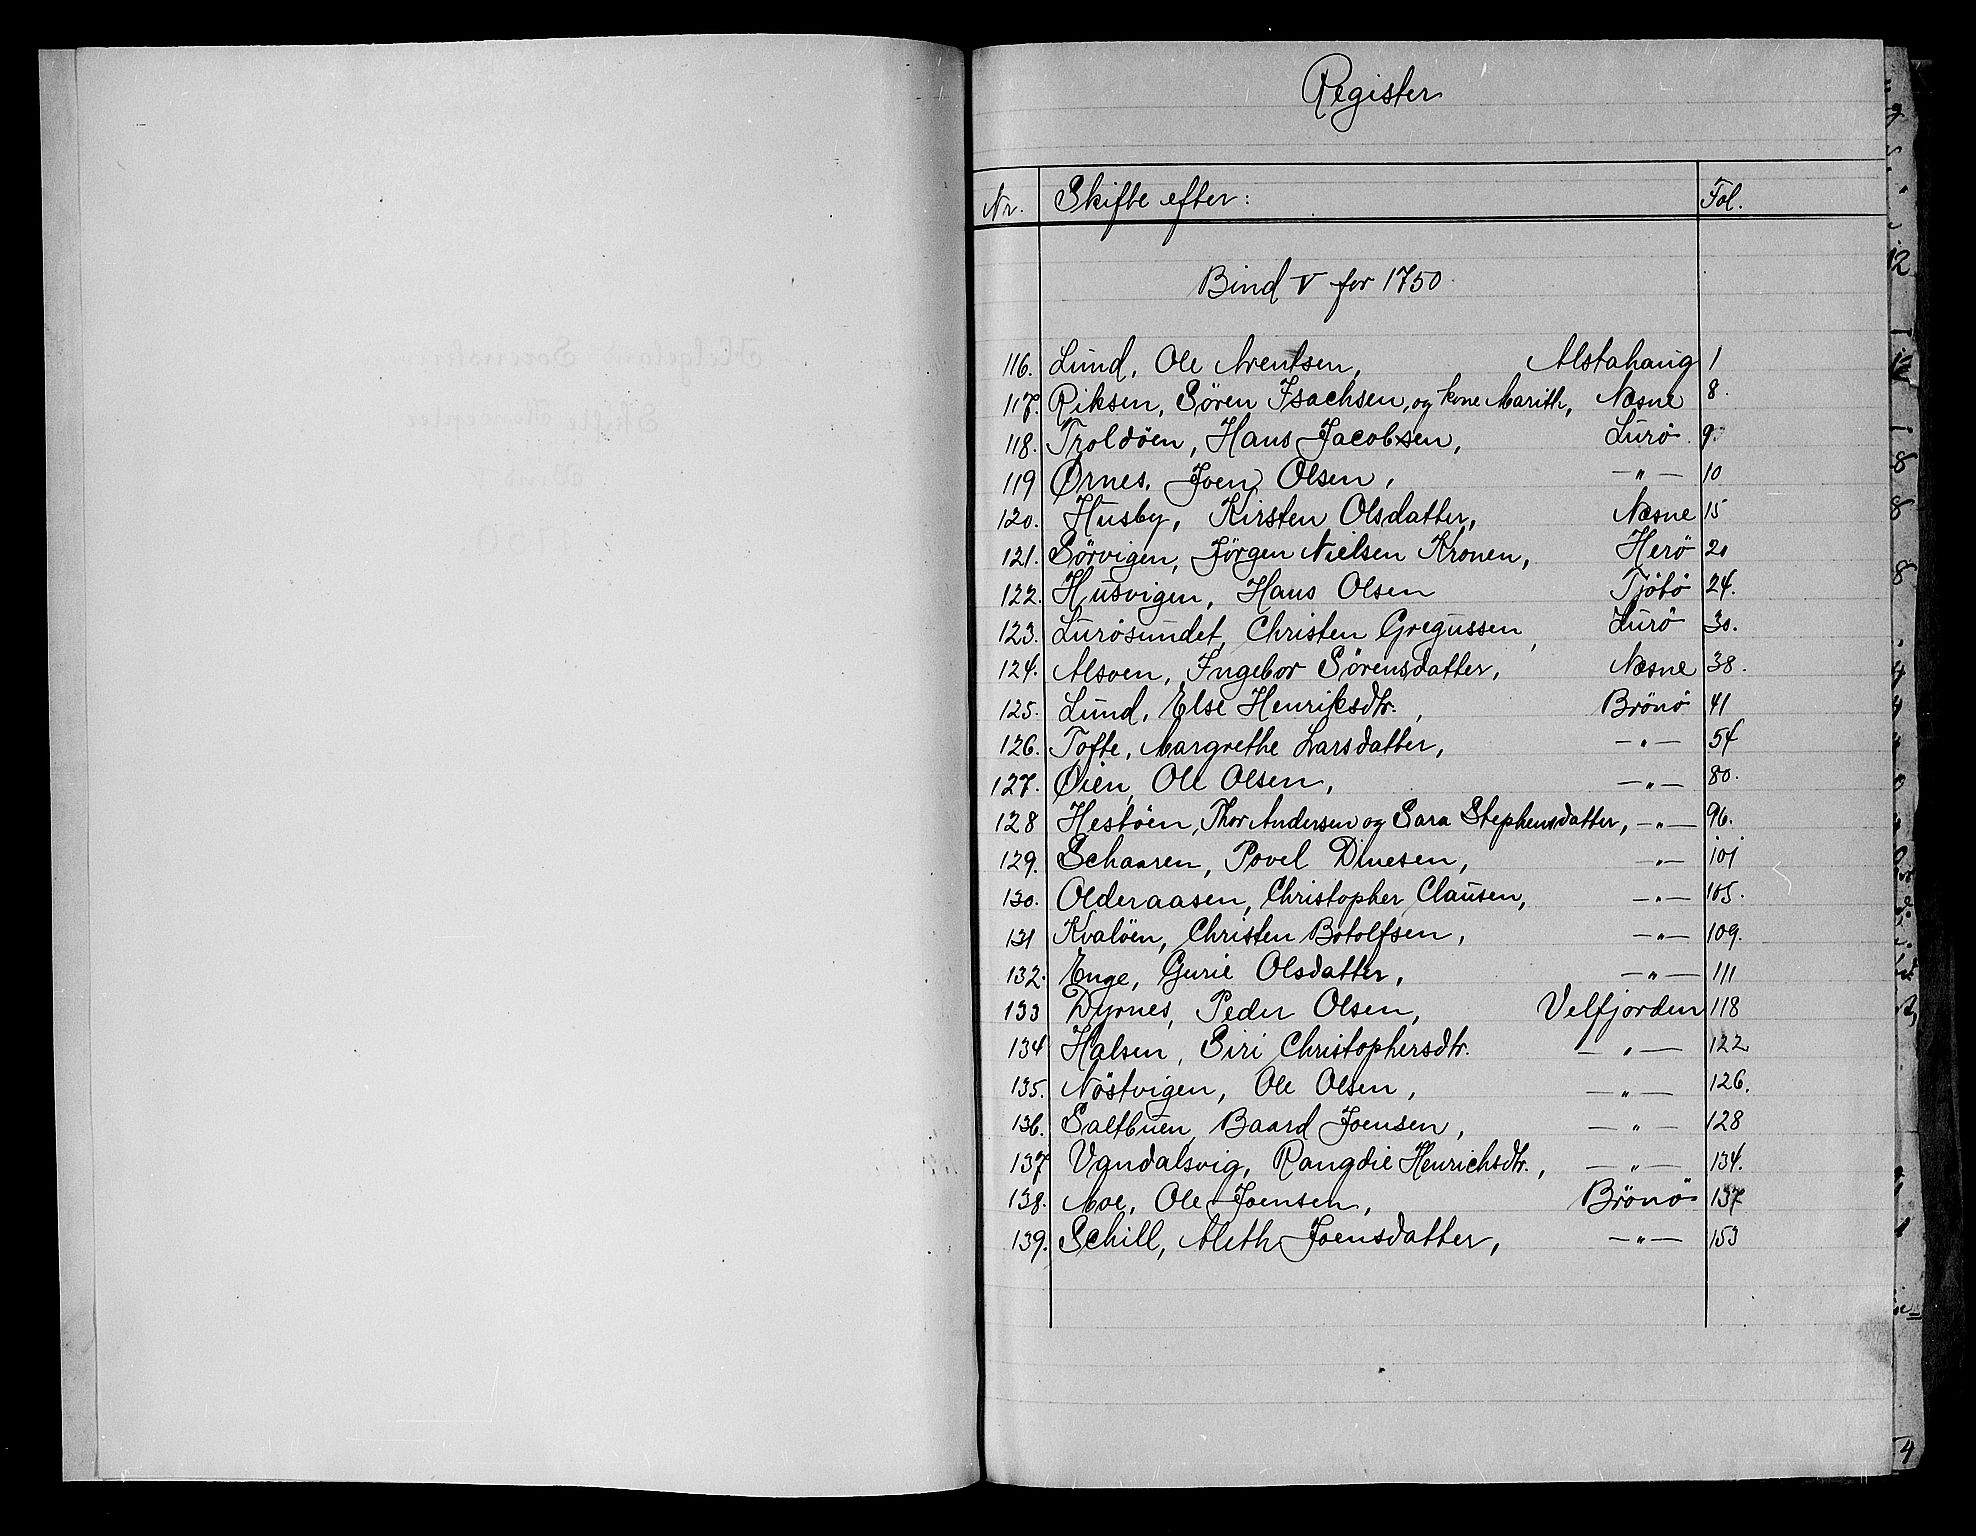 Register
Nr. Skifte efter: Fol.
Bind V for 1750.
116. Lund, Ole Arentsen, Alstahaug 1
117. Riksen, Sören Isachsen, og kone Marith, Næsne 8.
118. Troldöen, Hans Jacobsen, Lurö. 9.
119 Ørnes, Joen Olsen, —"— 10
120. Husby, Kirsten Olsdatter, Næsne 15
121. Sörvigen, Jörgen Nielsen Kronen, Herö 20
122. Husvigen, Hans Olsen Tjötö 24.
123. Lurösundet, Christen Gregussen, Lurö 30.
124. Alsoen, Ingebor Sörensdatter, Næsne 38.
125. Lund, Else Henriksdtr., Brönö 41
126. Tofte, Margrethe Larsdatter, —"— 54
127. Øien, Ole Olsen, —"— 80.
128 Hestöen, Thor Andersen og Sara Stephensdatter, —"— 96.
129. Schaaren, Povel Dinesen, —"— 101
130. Olderaasen, Christopher Clausen, —"— 105.
131 Kvalöen, Christen Botolfsen, —"— 109.
132. Enge, Gurie Olsdatter, —"— 111
133 Dyrnes, Peder Olsen, Velfjorden 118
134 Halsen, Siri Christophersdtr. —"— 122
135. Nöstvigen, Ole Olsen, —"— 126.
136. Saltbuen, Baard Joensen, —"— 128
137 Vandalsvig, Rangdie Henrichsdtr., —"— 134.
138. Moe, Ole Joensen, Brönö 137
139. Schill, Aleth Joensdatter, —"— 153